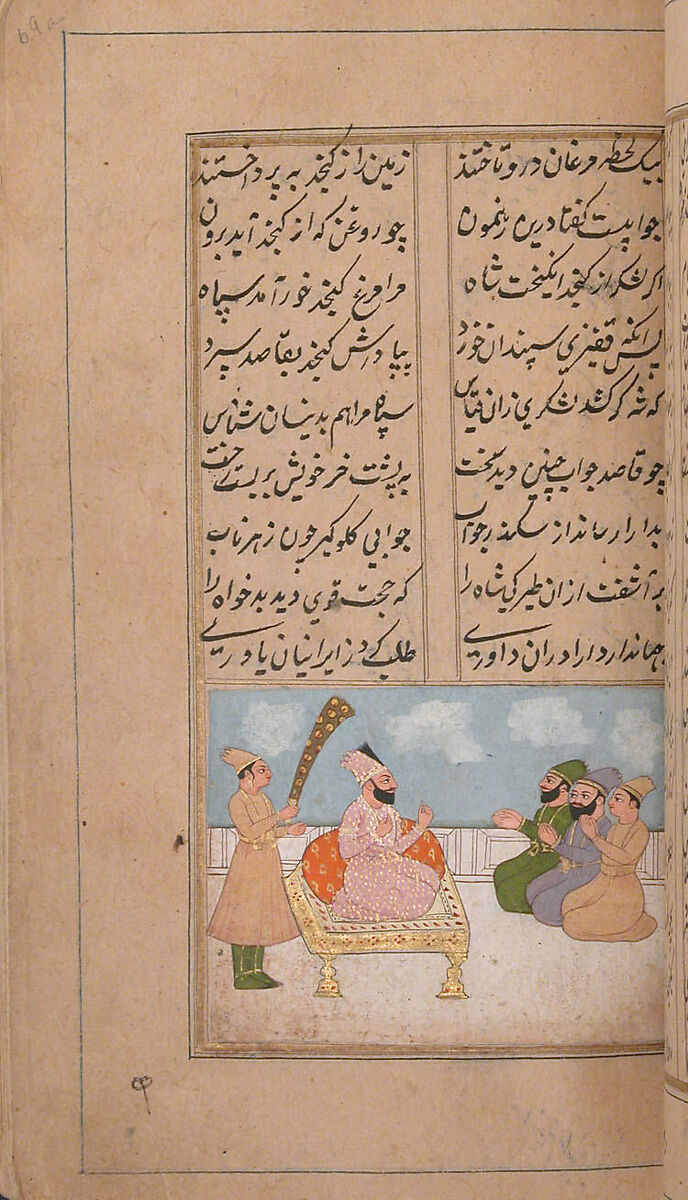 69a
بیک لحظه مرغان درو تاختند زمین را ز کنجد به پرداختند
جوابیست گفتا درین رهنمون چو روغن که از کنجد آید برون
اگر لشکر از کنجد انگیخت شاه مرا مرغ کنجد خور آمد سپاه
پس انکه قفیزی سپندان خورد بپاداش کنجد بقاصد سپرد
که شه گر کشد لشکری زان قیاس سپاه مرا هم بدینسان شناس
چو قاصد جواب چنین دید سخت به پشت خر خویش بربست رخت
بدارا رساند از سکندر جواب جوابی گلوگیر چون زهر ناب
بر آشفت ازان طیرگی شاه را که حجت قوی دید بدخواه را
جهاندار دارا دران داوری طلب کرد ز ایرانیان یاوری